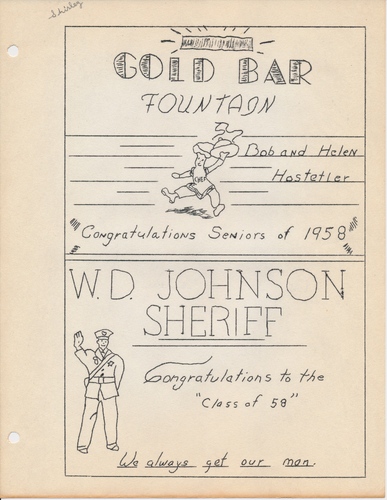 Shirley
GOLD BAR
FOUNTAIN
CHEF
Bob and Helen
Hostetler
"Congratulations Seniors of 1958"
W.D. JOHNSON
SHERIFF
Congratulations to the
"Class of 58"
We always get our man.